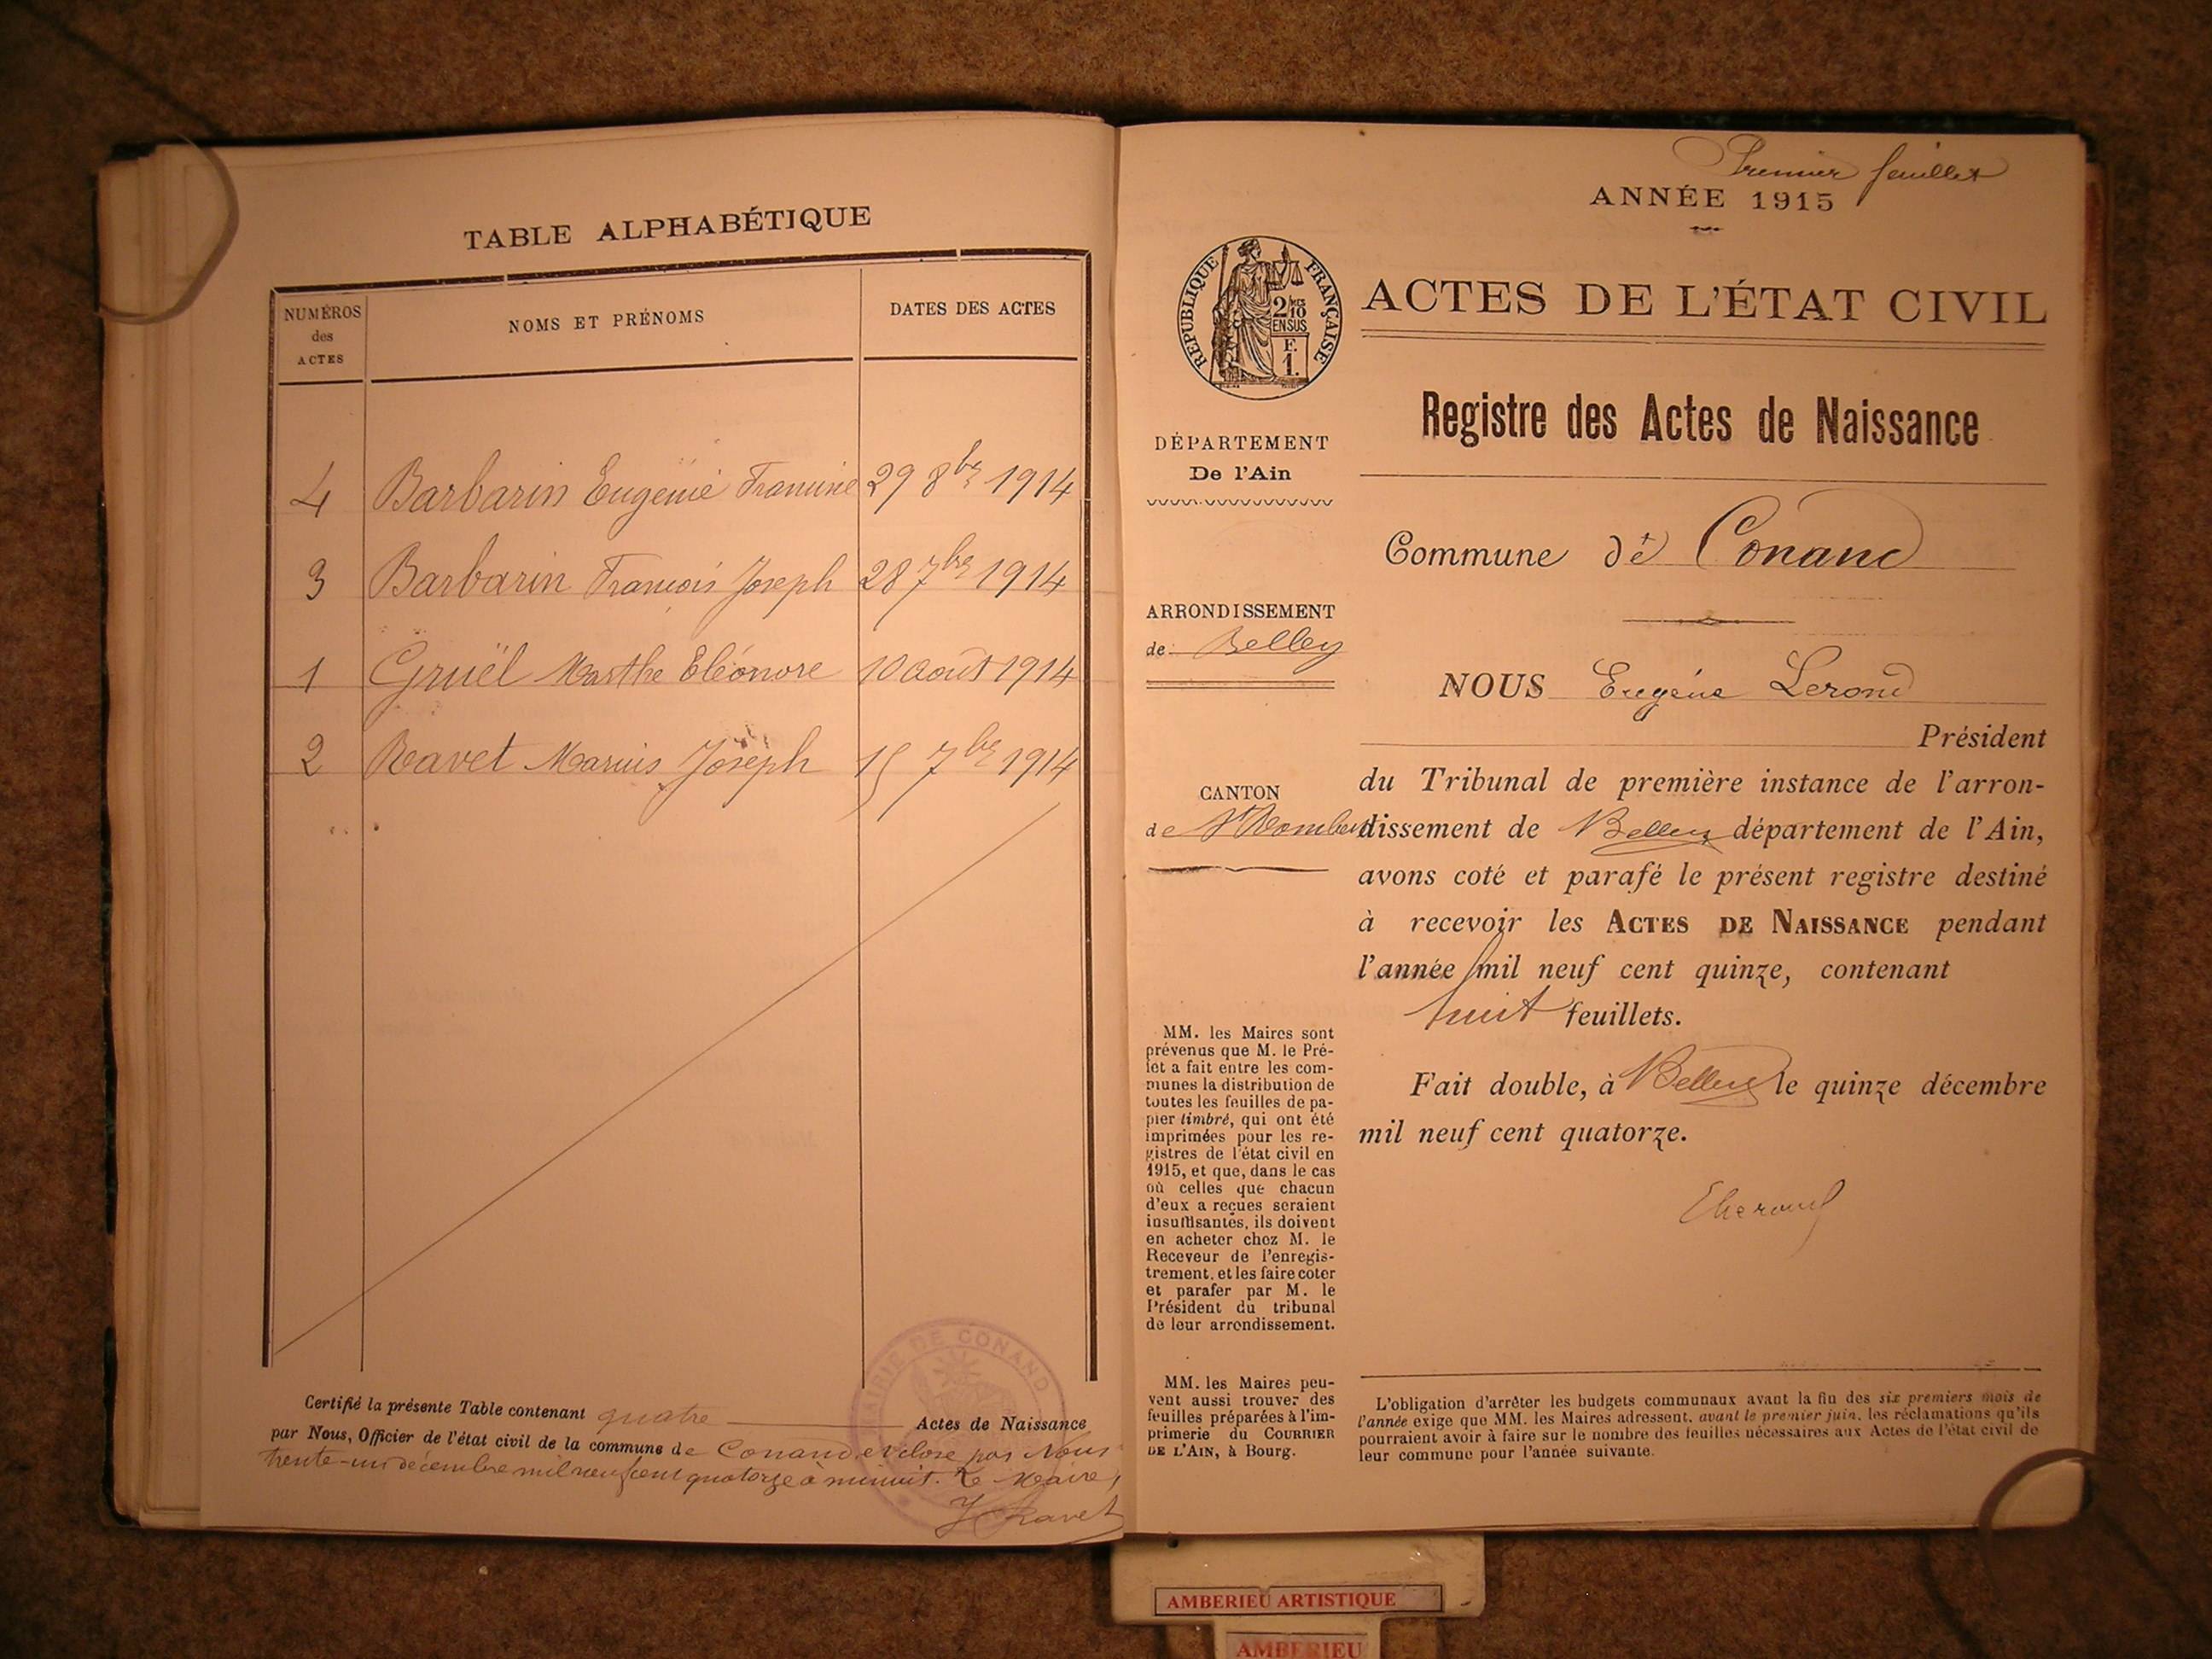 TABLE ALPHABÉTIQUE
NUMÉROS des ACTES
NOMS ET PRÉNOMS
DATES DES ACTES
4 Barbarin Eugénie Francine 29 8bre 1914
3 Barbarin François Joseph 28 7bre 1914
1 Gruël Marthe Eléonore 10 août 1914
2 Ravet Marius Joseph 15 7bre 1914
Certifié la présente Table contenant quatre Actes de Naissance
par Nous, Officier de l'état civil de la commune de Conand et close par Nous
trente-un décembre mil neuf cent quatorze à minuit. Le Maire,
J Ravet
MAIRIE DE CONAND
Premier feuillet
ANNÉE 1915
RÉPUBLIQUE FRANÇAISE
2/10 EN SUS
F. 1.
ACTES DE L'ÉTAT CIVIL
Registre des Actes de Naissance
DÉPARTEMENT
De l'Ain
Commune de Conand
ARRONDISSEMENT
de Belley
CANTON
de St Rambert
NOUS Eugène Lerond
Président
du Tribunal de première instance de l'arron-
dissement de Belley département de l'Ain,
avons coté et parafé le présent registre destiné
à recevoir les ACTES DE NAISSANCE pendant
l'année mil neuf cent quinze, contenant
huit feuillets.
Fait double, à Belley le quinze décembre
mil neuf cent quatorze.
MM. les Maires sont
prévenus que M. le Pré-
fet a fait entre les com-
munes la distribution de
toutes les feuilles de pa-
pier timbré, qui ont été
imprimées pour les re-
gistres de l'état civil en
1915, et que, dans le cas
où celles que chacun
d'eux a reçues seraient
insuffisantes, ils doivent
en acheter chez M. le
Receveur de l'enregis-
trement, et les faire coter
et parafer par M. le
Président du tribunal
de leur arrondissement.
MM. les Maires peu-
vent aussi trouver des
feuilles préparées à l'im-
primerie du COURRIER
DE L'AIN, à Bourg.
L'obligation d'arrêter les budgets communaux avant la fin des six premiers mois de
l'année exige que MM. les Maires adressent, avant le premier juin, les réclamations qu'ils
pourraient avoir à faire sur le nombre des feuilles nécessaires aux Actes de l'état civil de
leur commune pour l'année suivante.
AMBERIEU ARTISTIQUE
AMBERIEU